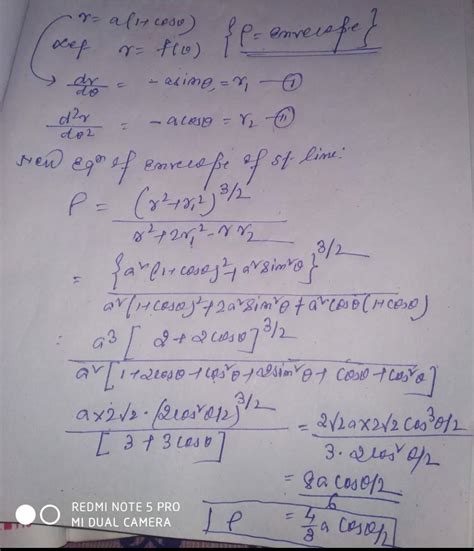 r = a(1+cosθ)
Let r = f(θ) {ρ = envelope}
dr/dθ = -asinθ = r₁ — (I)
d²r/dθ² = -acosθ = r₂ — (II)
Eqⁿ of envelope of st line:
ρ = (r²+r₁²)^3/2 / r²+2r₁²-rr₂
= {a²(1+cosθ)²+a²sin²θ}^3/2 / a²(1+cosθ)²+2a²sin²θ+a²cosθ(1+cosθ)
: a³[2+2cosθ]^3/2 / a²[1+2cosθ+cos²θ+2sin²θ+cosθ+cos²θ]
a×2√2·(2cos²θ/2)^3/2 / [3+3cosθ] = 2√2a×2√2cos³θ/2 / 3·2cos²θ/2
= 8acosθ/2 / 6
ρ = 4/3 a cosθ/2
REDMI NOTE 5 PRO
MI DUAL CAMERA